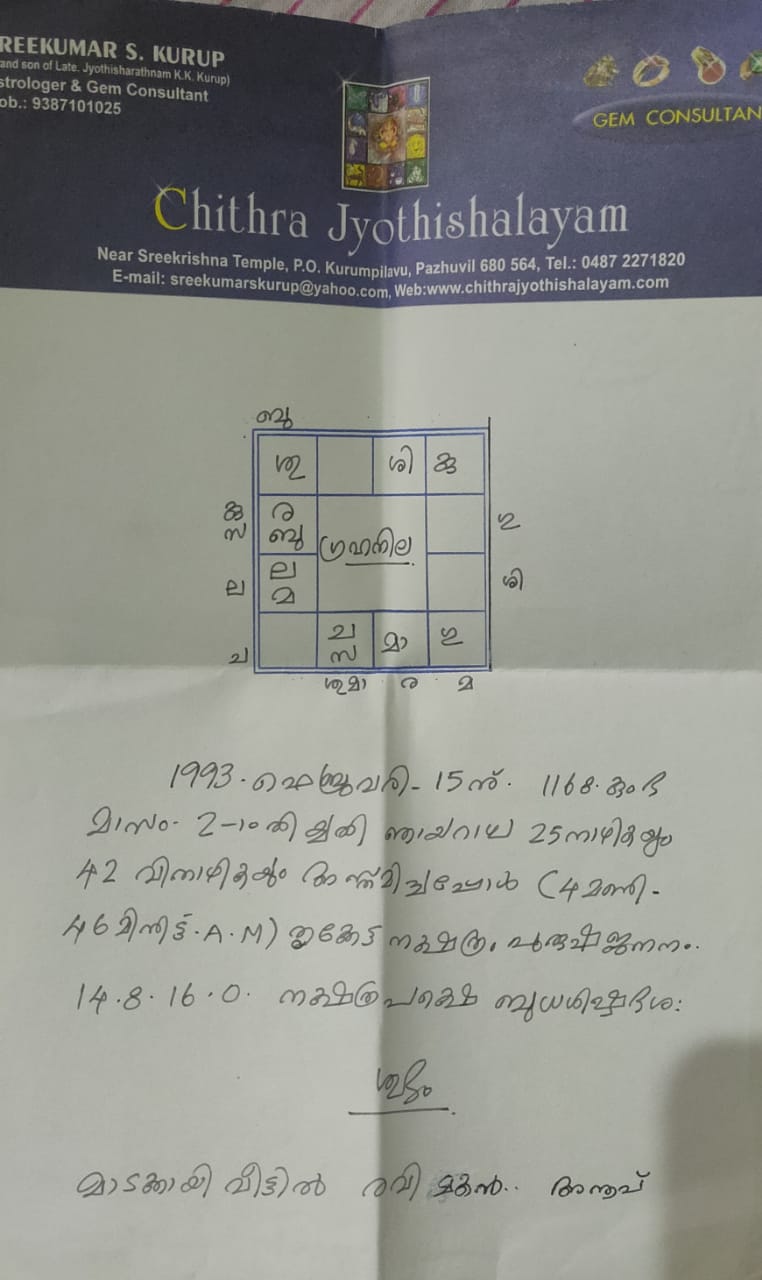 REEKUMAR S. KURUP
and son of Late. Jyothisharathnam K.K. Kurup)
strologer & Gem Consultant
ob.: 9387101025
GEM CONSULTAN
Chithra Jyothishalayam
Near Sreekrishna Temple, P.O. Kurumpilavu, Pazhuvil 680 564, Tel.: 0487 2271820
E-mail: sreekumarskurup@yahoo.com, Web:www.chithrajyothishalayam.com
ബു
ശു ശി കു
കു ര ഗു
സ ബു ഗ്രഹനില
ല ല ശി
മ
ച ച മാ ഗു
സ
ശുമാ ര മ
1993. ഫെബ്രുവരി - 15ന്. 1168. കുംഭ
മാസം. 2-ാം തിയ്യതി ഞായറാഴ്ച 25 നാഴികയും
42 വിനാഴികയും അസ്തമിച്ചപ്പോൾ (4 മണി -
46 മിനിട്ട്. A.M) തൃക്കേട്ട നക്ഷത്രം. പുരുഷജനനം..
14.8.16.0. നക്ഷത്രപക്ഷെ ബുധശിഷ്ടദശ:
ശുഭം
മാടക്കായി വീട്ടിൽ രവി മകൻ..